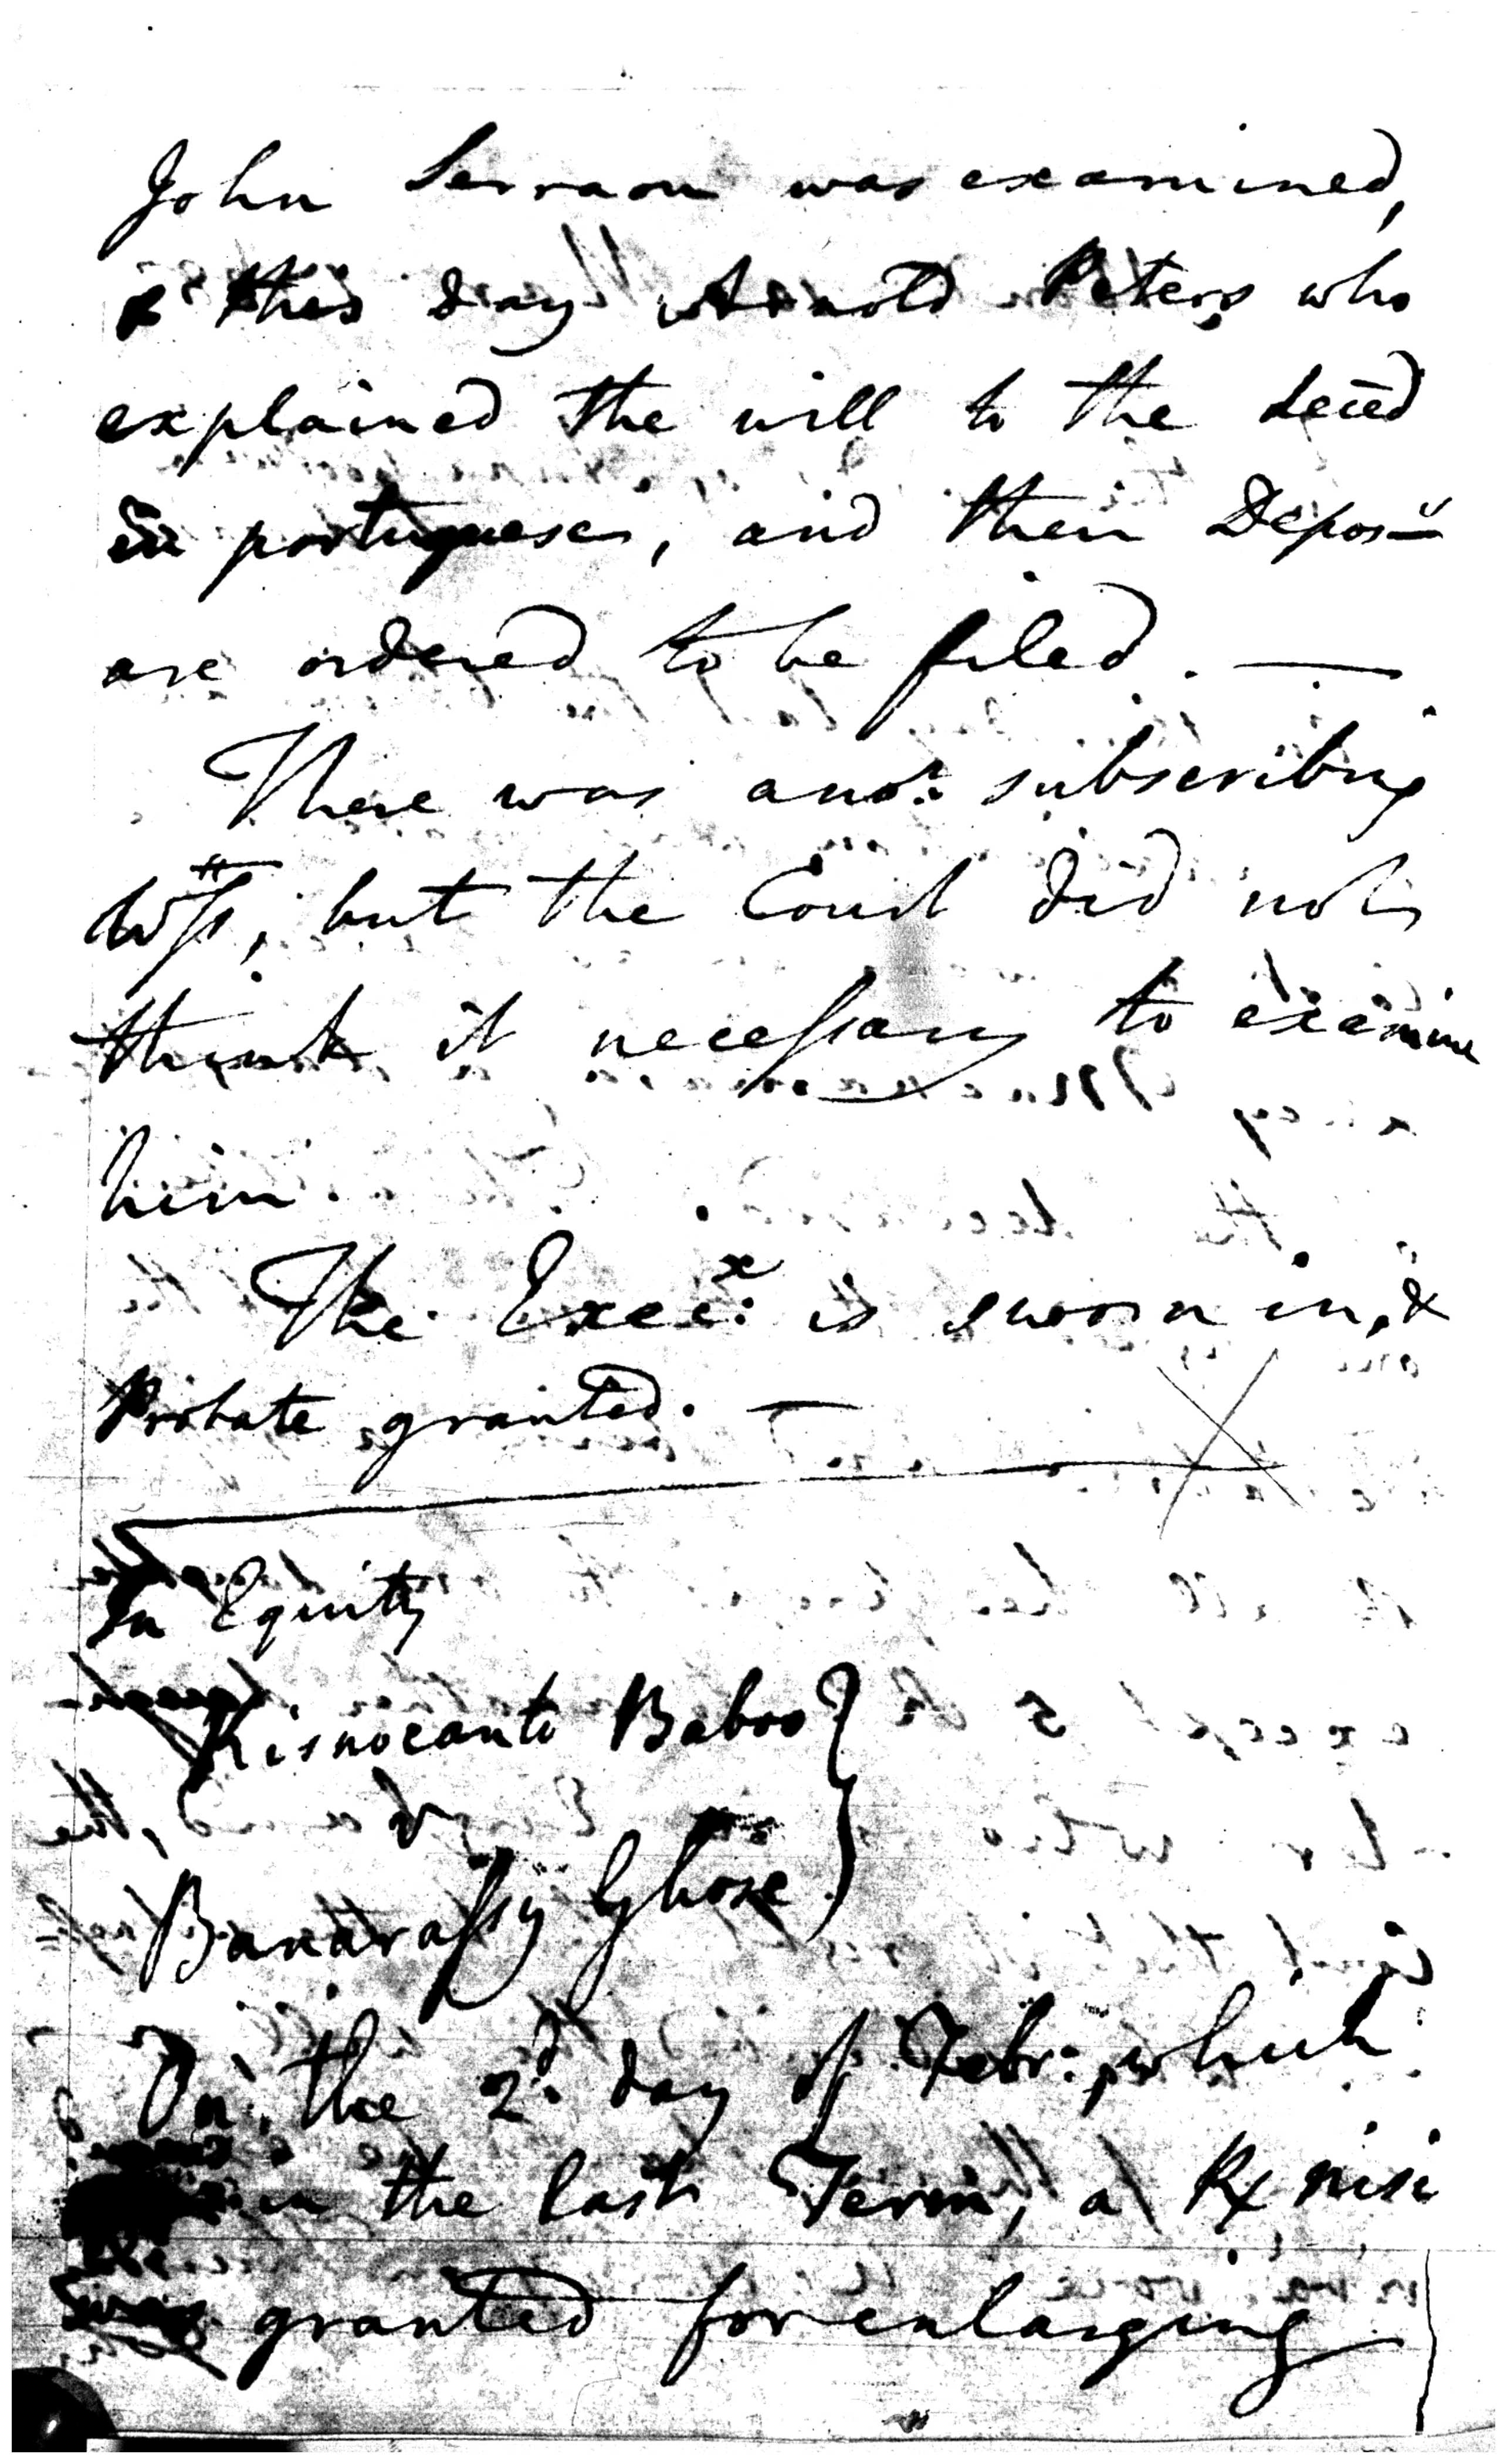 John Serraon was examined,
& this day Arnold Peters, who
explained the will to the deced
in portuguese, and their Depos
are ordered to be filed. —
There was anor: subscribing
Wss, but the Court did not
think it necessary to examine
him.
The Execx: is sworn in, &
Probate granted. —
In Equity
Kisnocanto Baboo
v
Banarassy Ghose
On the 2d. day of Febr:, which
in the last Term, a Rx nisi
granted for enlarging